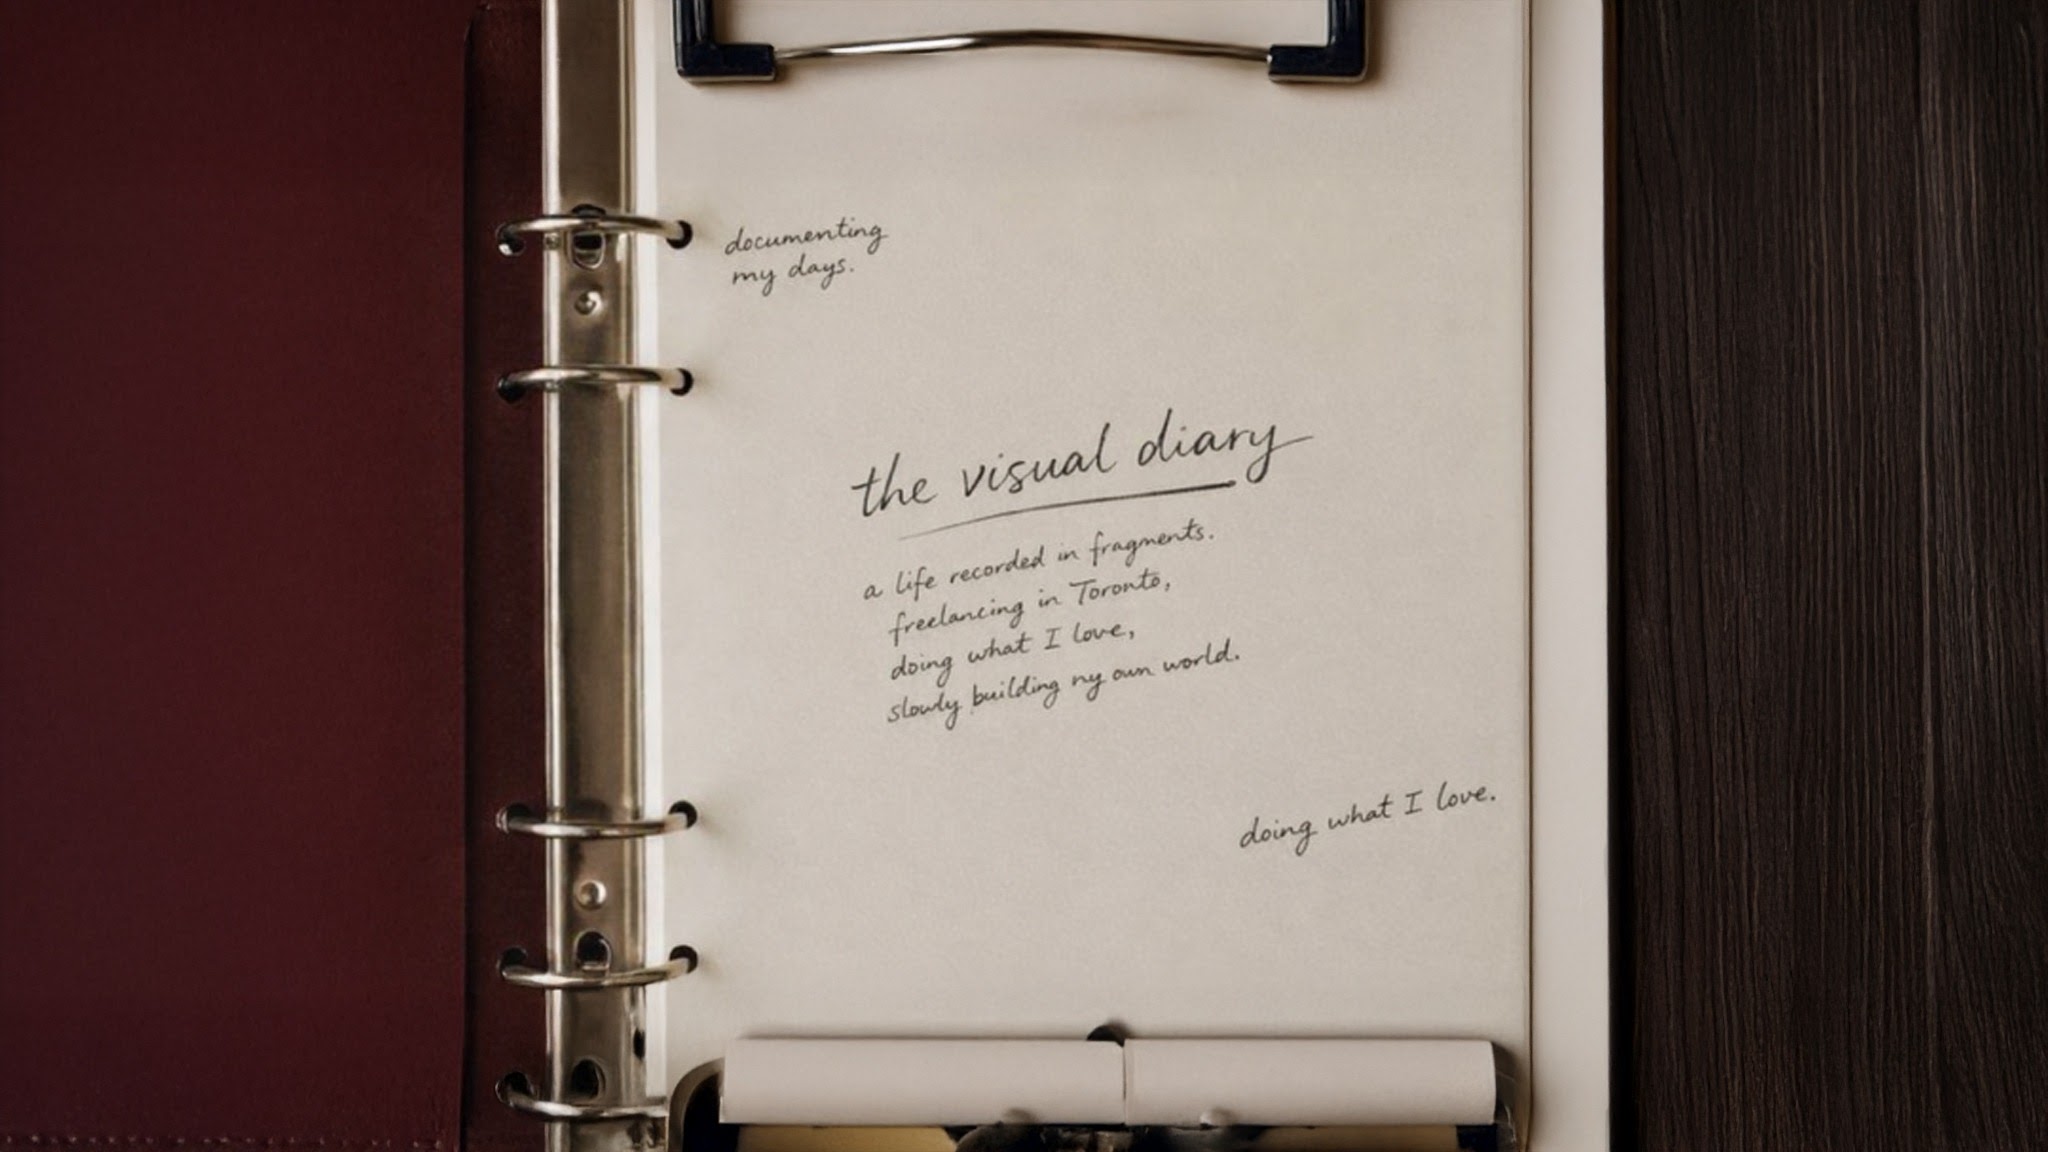 documenting
my days.
the visual diary
a life recorded in fragments.
freelancing in Toronto,
doing what I love,
slowly building ny own world.
doing what I love.